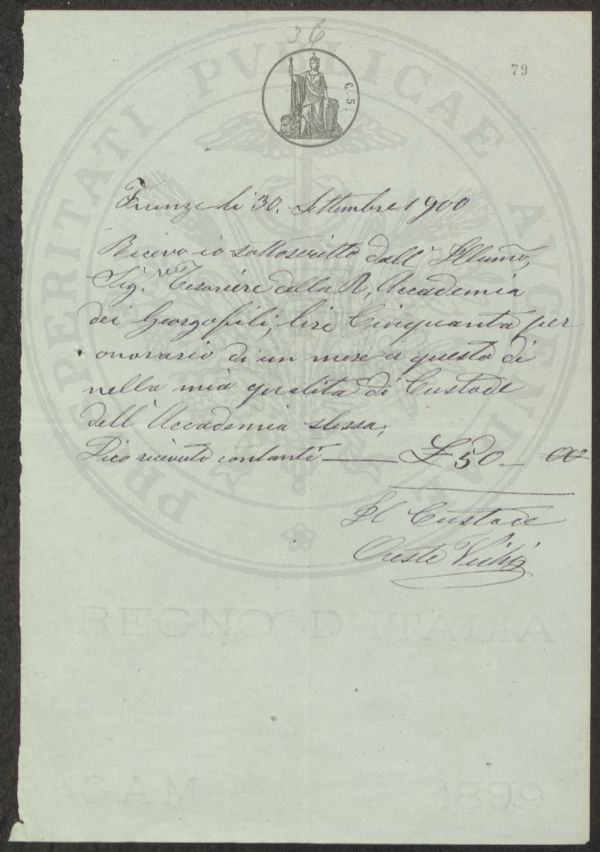 36
79
C. 5.
Firenze li 30. Settembre 1900
Ricevo io sottoscritto dall' Illumo,
Sig.re Tesoriere della R, Accademia
dei Georgofili, lire Cinquanta per
onorario di un mese a questo dì
nella mia qualità di Custode
dell' Accademia stessa,
Dico ricevute contanti — £ 50 — 00
Il Custode
Oreste
PROSPERITATI PVBLICAE AVGENDAE
REGNO D'ITALIA
GAM 1899